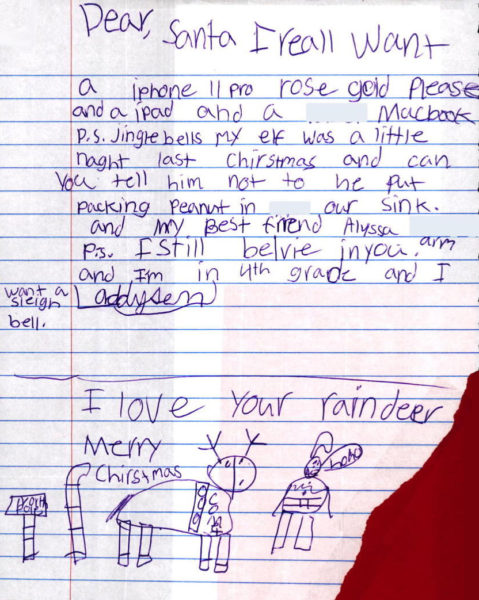 Dear, Santa I reall want
a iphone 11 pro rose gold please
and a ipad and a Macbook
P.S. Jingle bells my elf was a little
naght last Chirstmas and can
You tell him not to he put
packing Peanut in our sink.
and my Best friend Alyssa
P.s. I still belvie in you. arm
and I'm in 4th grade and I
want a
sleigh
bell.
addysen
I love your raindeer
Merry
Chirstmas
hoho